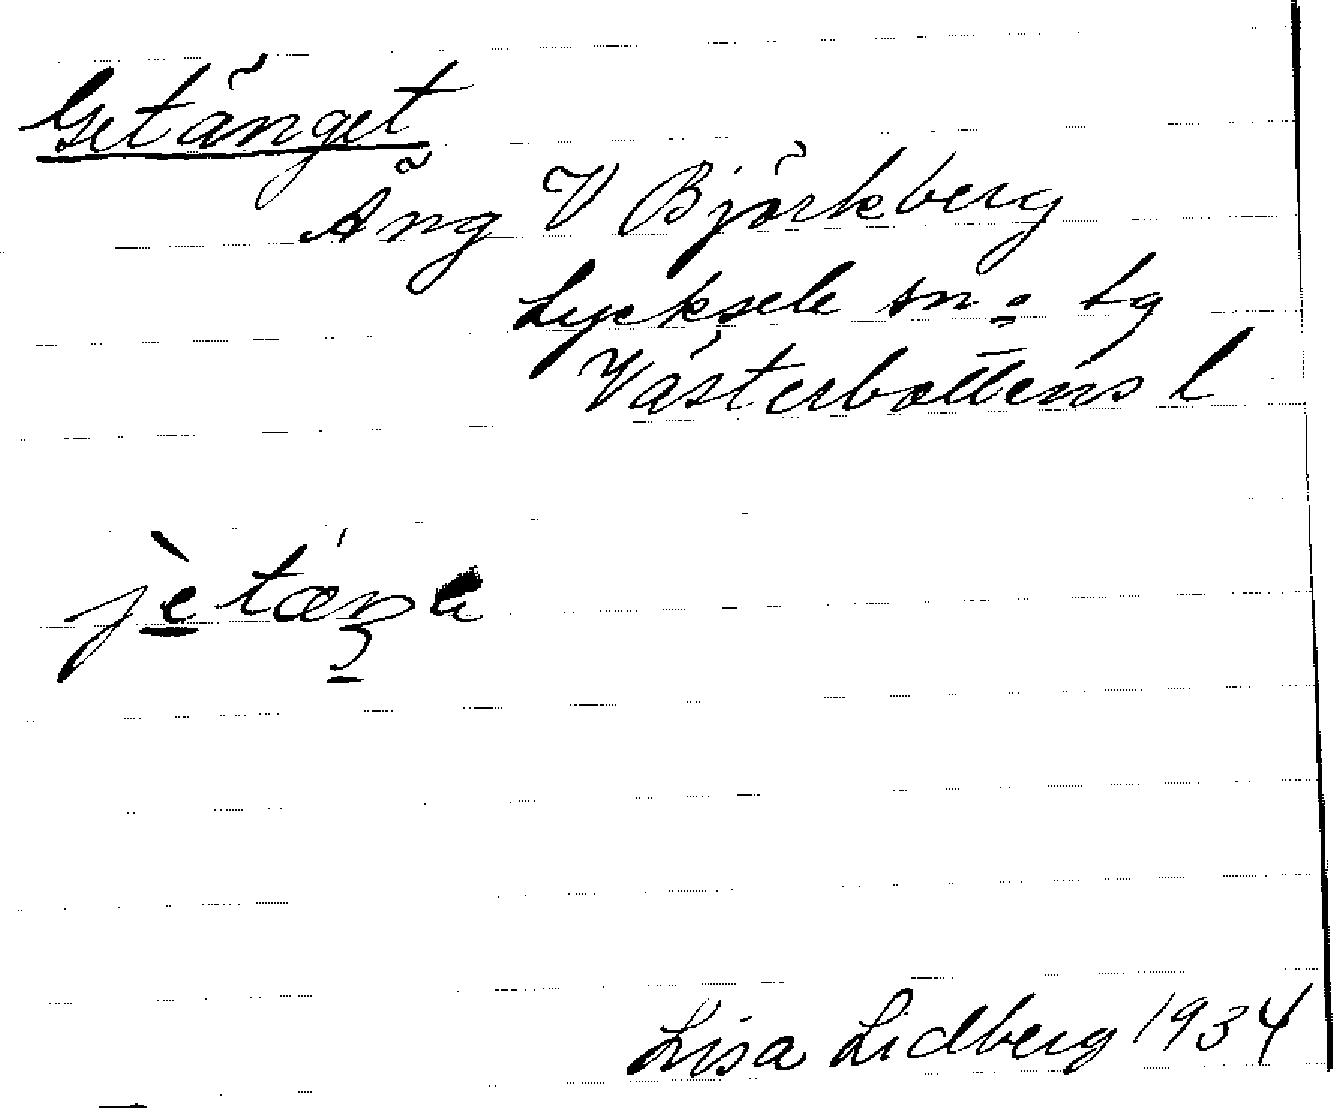 Getänget
Äng V Björkberg
Lycksele sn o. lg
Västerbottens l
Lisa Lidberg 1934